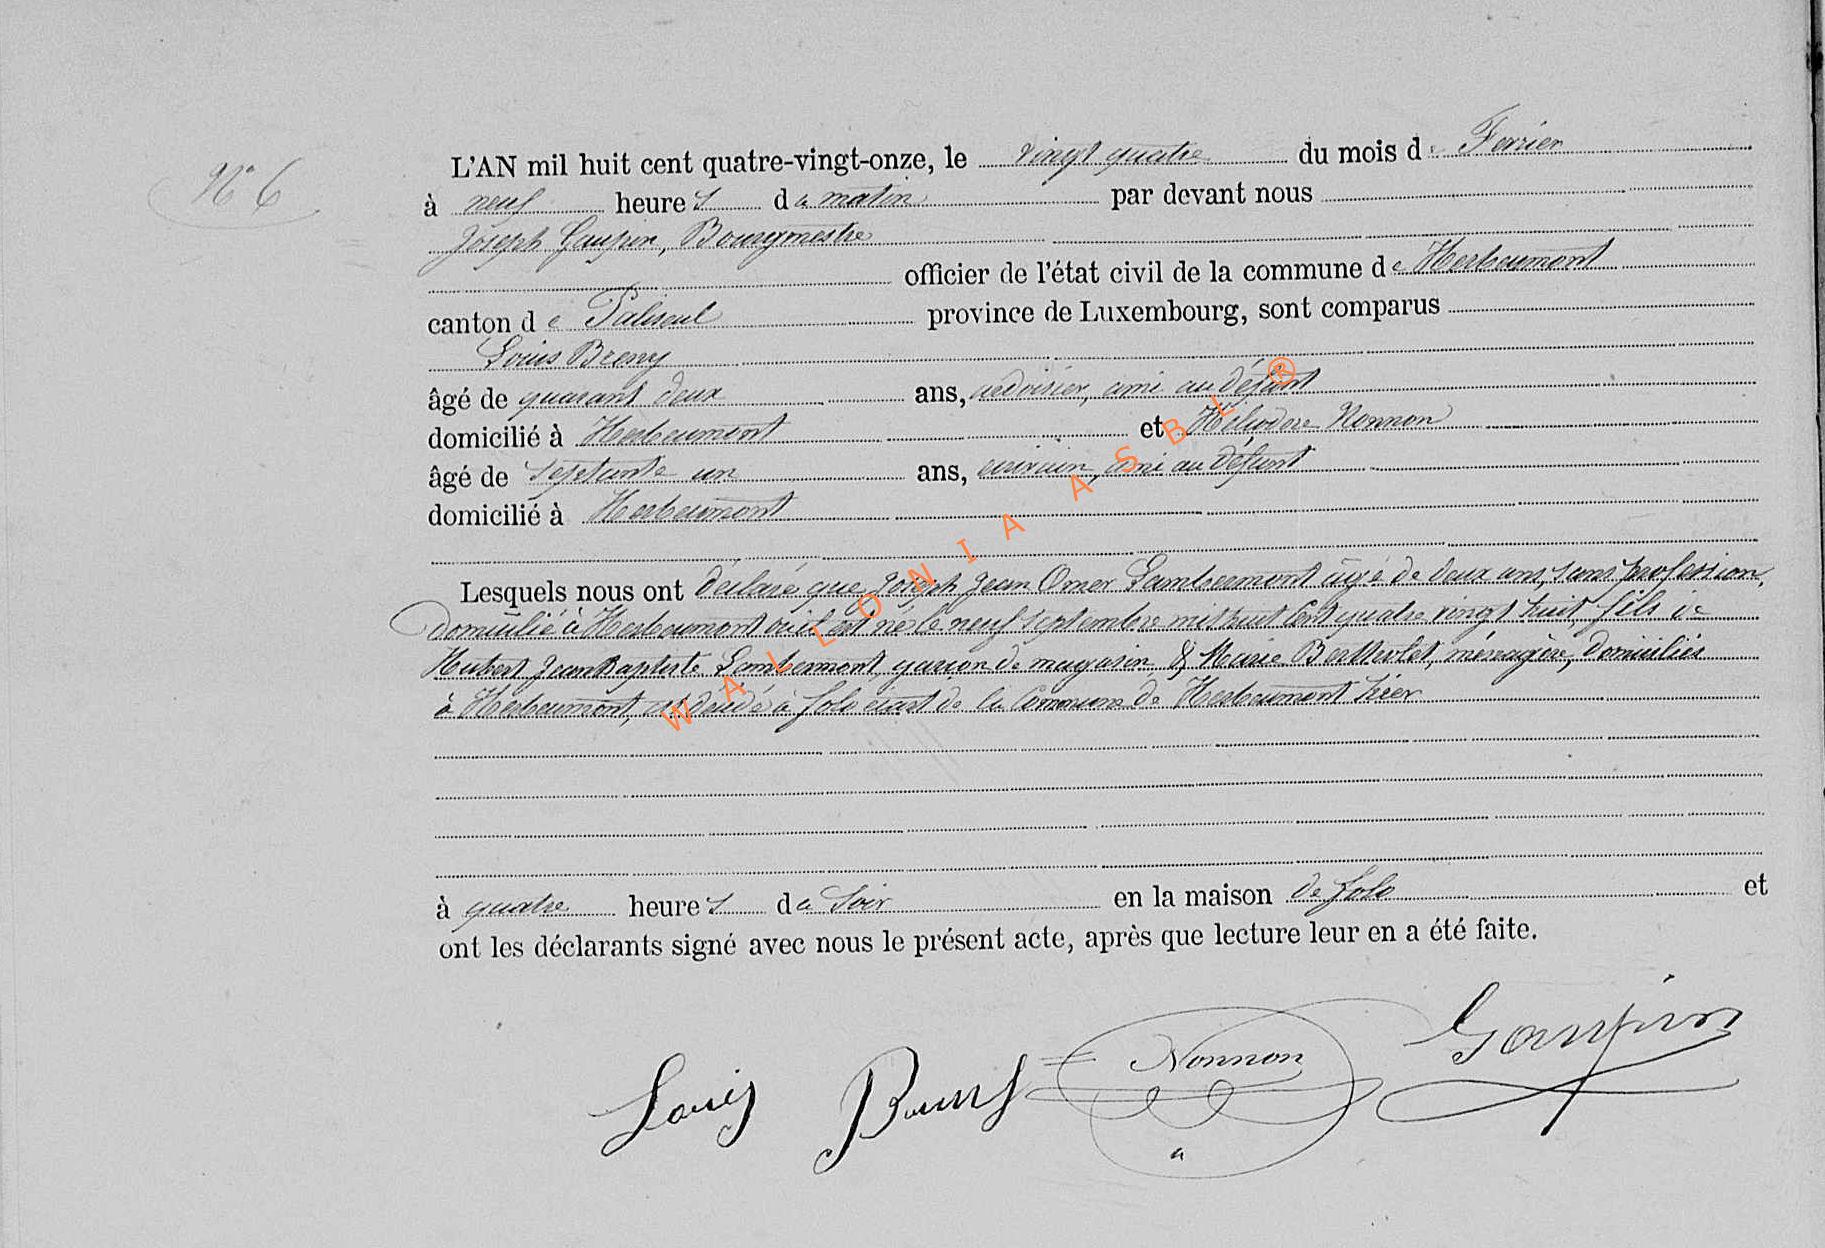 N° 6
L'AN mil huit cent quatre-vingt-onze, le vingt quatre du mois de Fevrier
à neuf heures du matin par devant nous
Joseph Gaupin, Bourgmestre
officier de l'état civil de la commune de Herbeumont
canton de Paliseul province de Luxembourg, sont comparus
Louis Breny
âgé de quarant deux ans, ardoisier, ami au défunt
domicilié à Herbeumont et Héliodore Nonnon
âgé de septante un ans, écrivain, ami au défunt
domicilié à Herbeumont
Lesquels nous ont déclaré que Joseph Jean Omer Lambermont âgé de deux ans, sans profession,
domicilié à Herbeumont où il est né le neuf septembre mil huit cent quatre vingt huit, fils de
Hubert Jean Baptiste Lambermont, garçon de magasin & Marie Berthelet, ménagère, domiciliés
à Herbeumont, est décédé à folo écart de la Commune de Herbeumont hier
à quatre heures du Soir en la maison de folo et
ont les déclarants signé avec nous le présent acte, après que lecture leur en a été faite.
Louis Nonnon Gaupin
WALLONIA ASBL ®